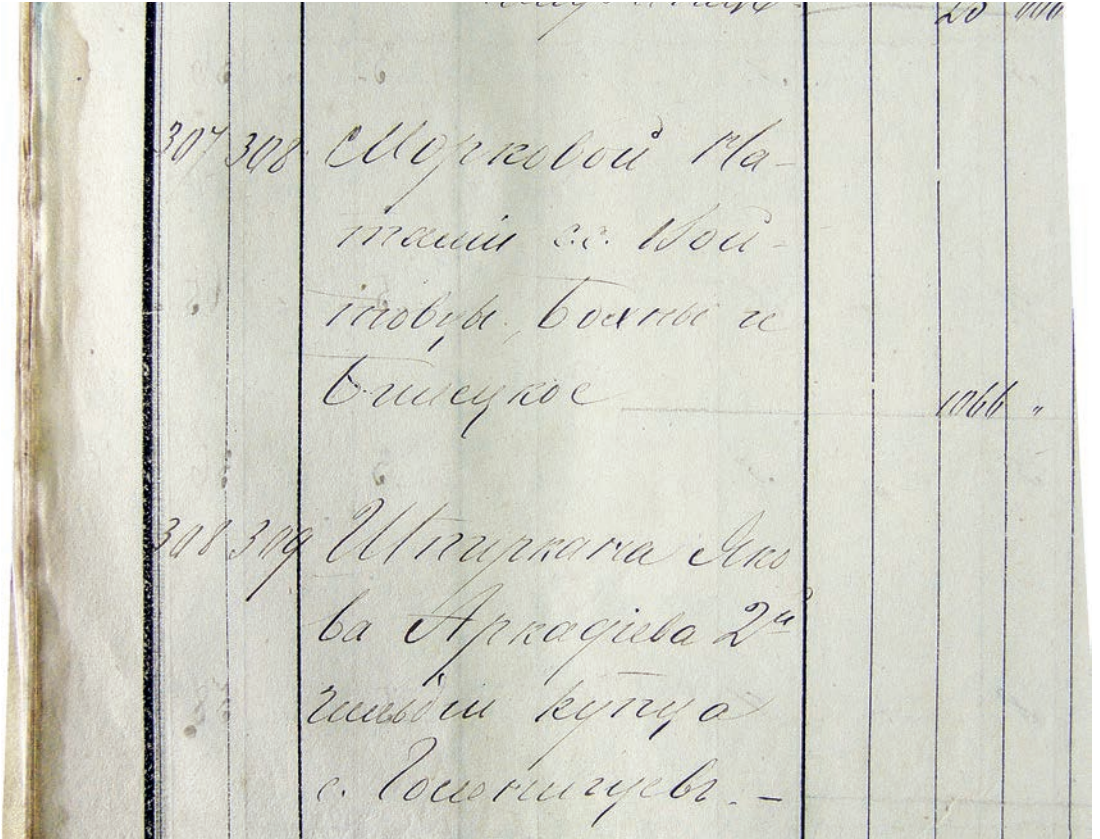 20
307 308 Морковой На-
таліи с.с. Вой-
товцы, Бокны и
Билецкое 1066 "
308 309 Штиркана Яко
ва Аркадіева 2й
гильдіи купца
с. Голенищевъ. -